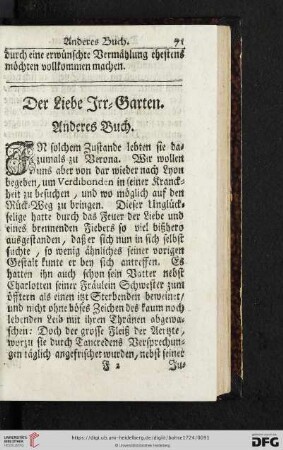 Anderes Buch. 71
durch eine erwünschte Vermählung ehestens
möchten vollkommen machen.
Der Liebe Irr-Garten.
Anderes Buch.
IN solchem Zustande lebten sie da-
zumals zu Verona. Wir wollen
uns aber von dar wieder nach Lyon
begeben, um Verdibonden in seiner Kranck-
heit zu besuchen, und wo möglich auf den
Rück-Weg zu bringen. Dieser Unglück-
selige hatte durch das Feuer der Liebe und
eines brennenden Fiebers so viel bißhero
ausgestanden, daß er sich nun in sich selbst
suchte, so wenig ähnliches seiner vorigen
Gestalt kunte er bey sich antreffen. Es
hatten ihn auch schon sein Vatter nebst
Charlotten seiner Fräulein Schwester zum
öfftern als einen itzt Sterbenden beweinet,
und nicht ohne böses Zeichen des kaum noch
lebenden Leib mit ihren Thränen abgewa-
schen: Doch der grosse Fleiß der Aertzte,
worzu sie durch Tancredens Versprechun-
gen täglich angefrischet wurden, nebst seiner
F 2 Ju-
UNIVERSITÄTS-
BIBLIOTHEK
HEIDELBERG
https://digi.ub.uni-heidelberg.de/diglit/bohse1724/0091
© Universitätsbibliothek Heidelberg
gefördert durch die
DFG